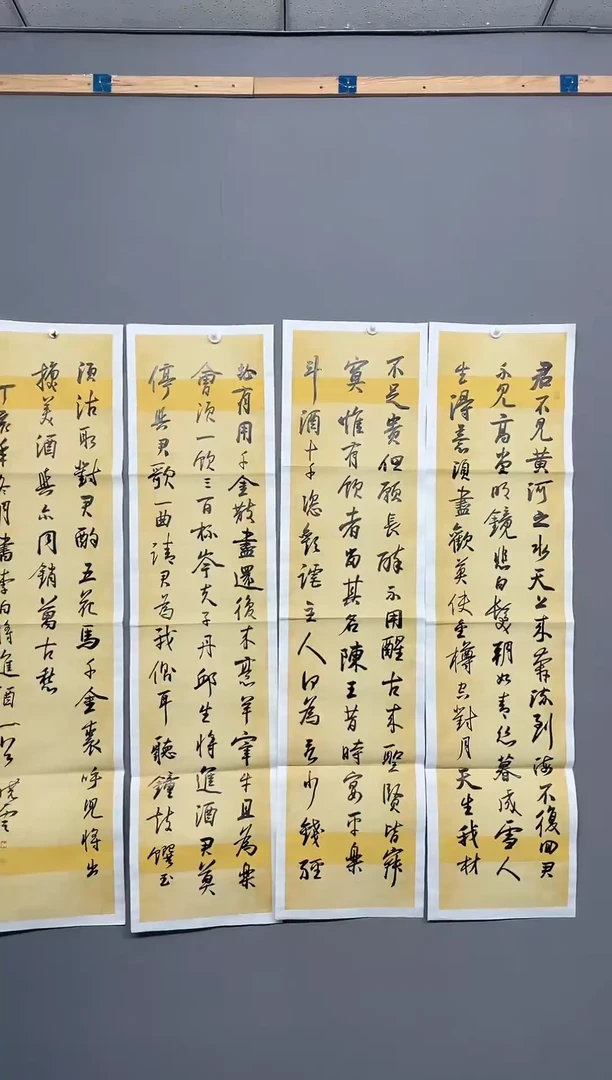 君不見黃河之水天上來奔流到海不復回君
不見高堂明鏡悲白髮朝如青絲暮成雪人
生得意須盡歡莫使金樽空對月天生我材
不足貴但願長醉不用醒古來聖賢皆寂
寞惟有飲者留其名陳王昔時宴平樂
斗酒十千恣歡謔主人何為言少錢徑
必有用千金散盡還復來烹羊宰牛且為樂
會須一飲三百杯岑夫子丹邱生將進酒君莫
停與君歌一曲請君為我側耳聽鐘鼓饌玉
須沽取對君酌五花馬千金裘呼兒將出
換美酒與爾同銷萬古愁
丁亥年冬月書李白將進酒一首